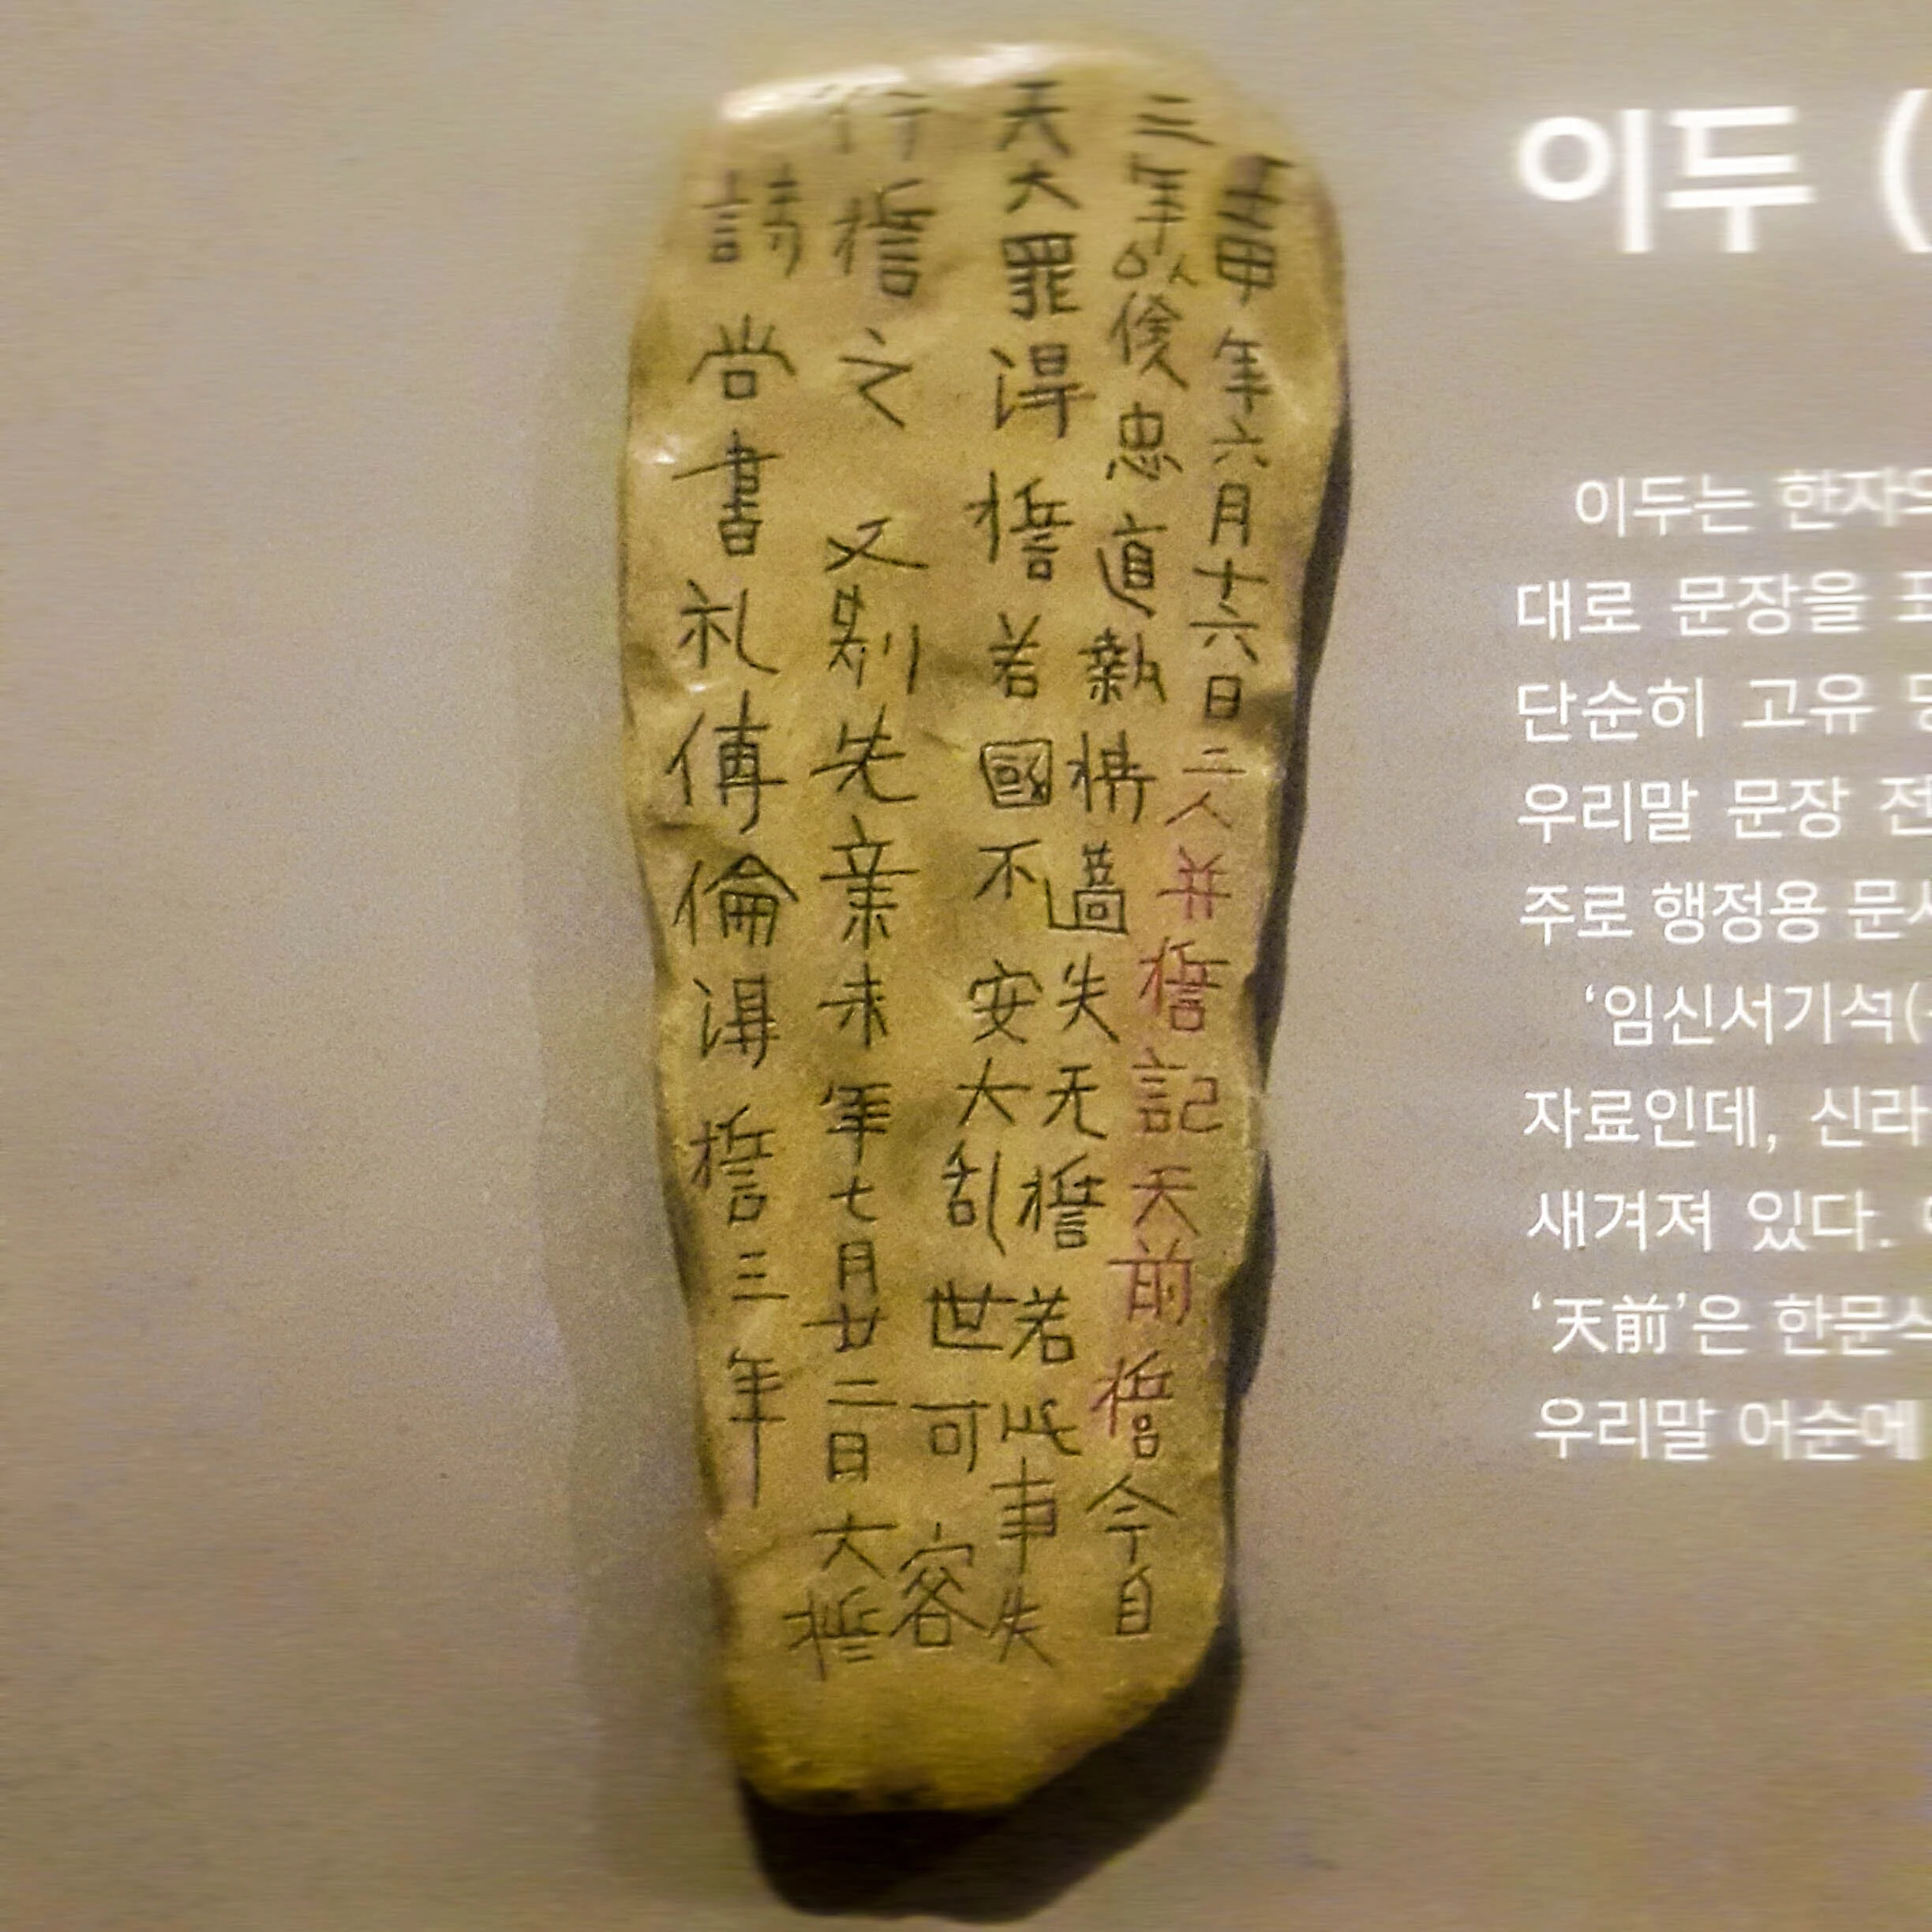 壬申年六月十六日二人并誓記天前誓今自
三年以後忠道執持過失无誓若此事失
天大罪得誓若國不安大乱世可容
行誓之 又別先辛未年七月廿二日大誓
詩尚書礼傳倫得誓三年
이두 (
이두는 한자의
대로 문장을
단순히 고유
우리말 문장 전
주로 행정용 문서
‘임신서기석(
자료인데, 신라
새겨져 있다.
‘天前’은 한문식
우리말 어순에